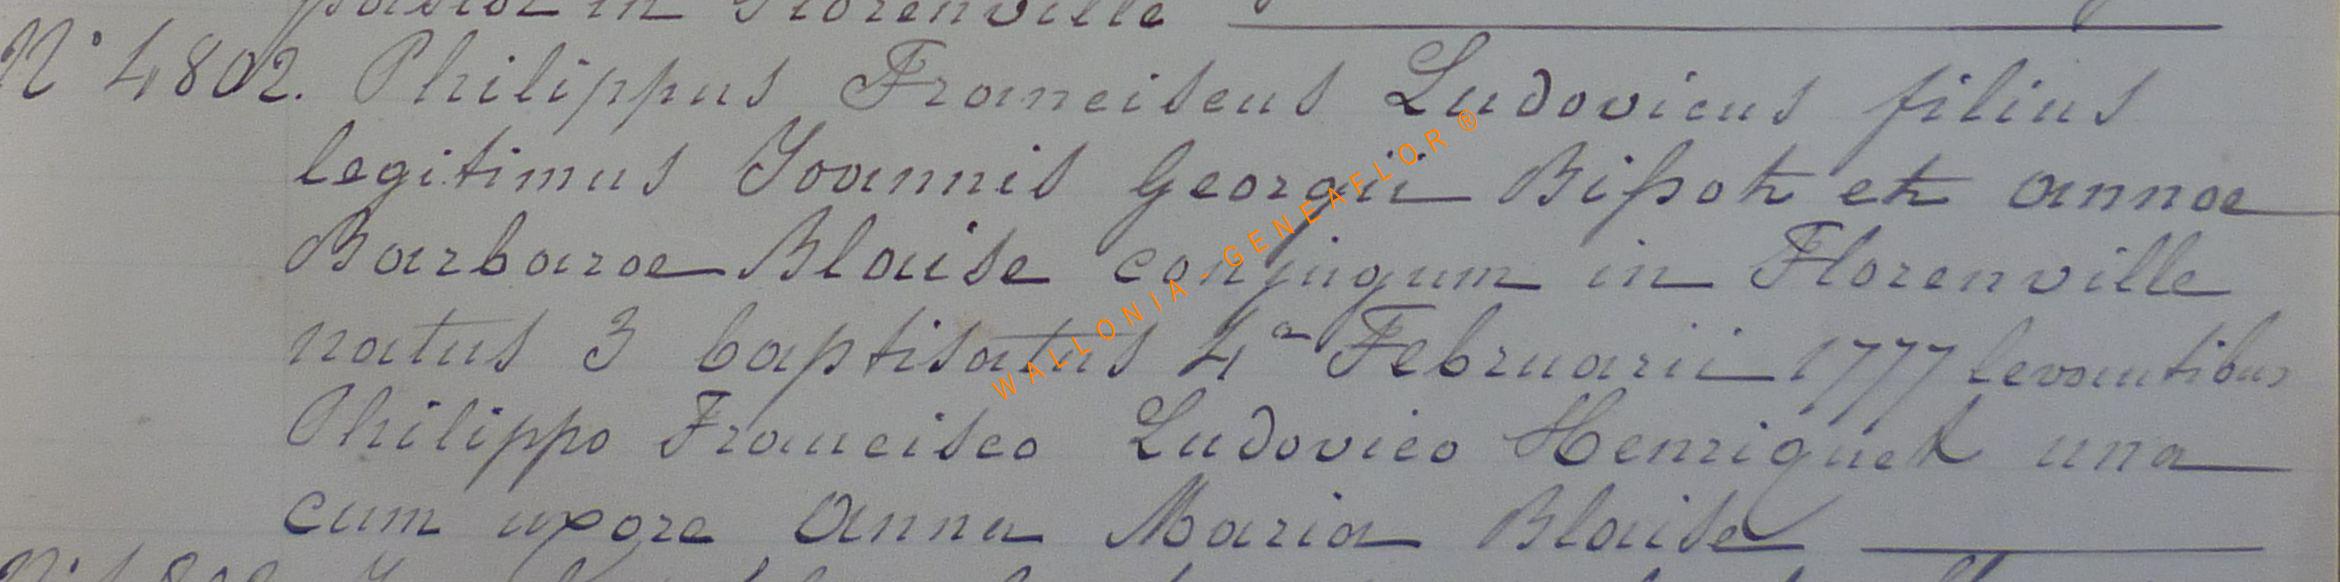 pastor in Florenville
N° 4802. Philippus Franciscus Ludovicus filius
legitimus Joannis Georgii Bissot et annae
Barbarae Blaise conjugum in Florenville
natus 3 baptisatus 4a Februarii 1777 levantibus
Philippo Francisco Ludovico Henriquet una
cum uxore Anna Maria Blaise
WALLONIA - GENEAFLOR ®